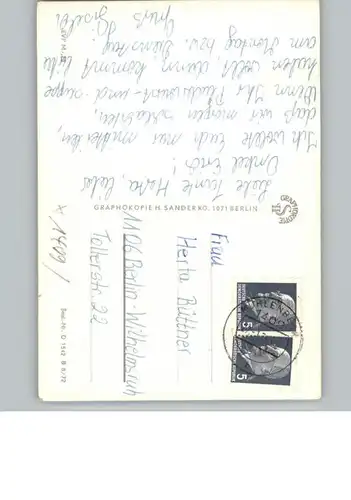 Liebe Tante Herta, lieber
Onkel Erich!
Ich wollte Euch nur mitteilen,
daß wir morgen schlachten,
Wenn Ihr Fleisch, Wurst- und -suppe
haben wollt, dann kommt bitte
am Montag bzw. Dienstag
Gruß
Gisela.
GRAPHOKOPIE H. SANDER KG. 1071 BERLIN
GRAPHOKOPIE
HS
Frau
Herta Büttner
1106 Berlin-Wilhelmsruh
Tollerstr. 22
5
5
Best.-Nr. D 1542 B 8/72